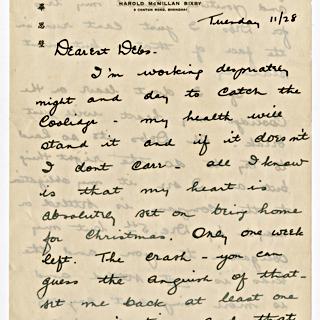 HAROLD McMILLAN BIXBY
Tuesday 11/28
Dearest Debs.
I'm working desprately
night and day to catch the
Coolidge - my health will
stand it and if it doesn't
I dont care - all I know
is that my heart is
absolutely set on being home
for Christmas. Only one week
left. The crash - you can
guess the anguish of that.
set me back at least one